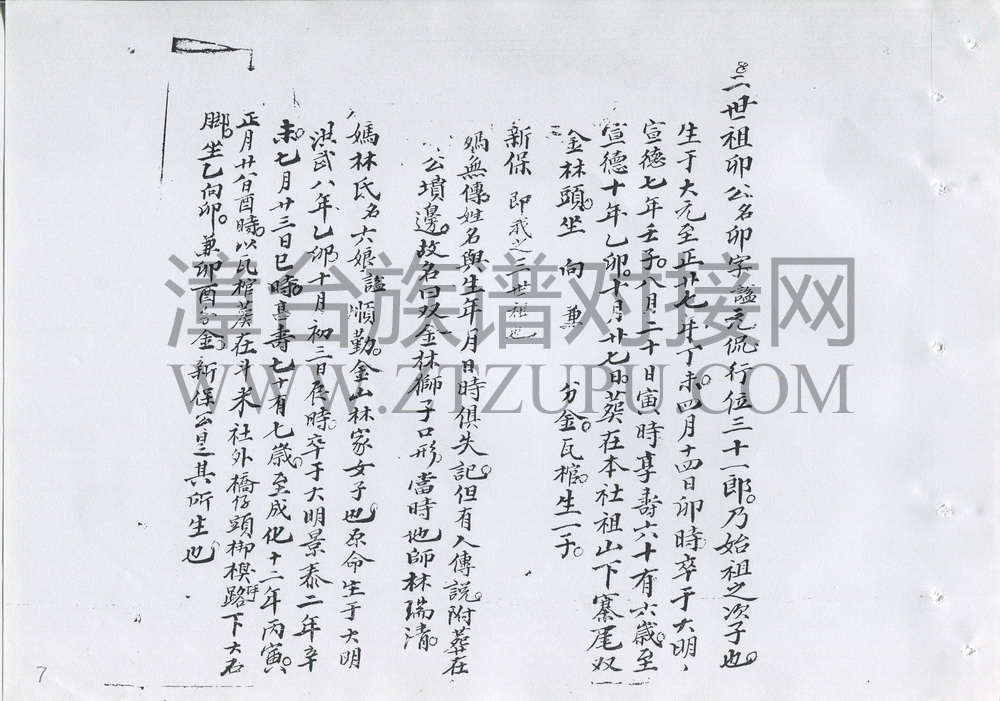 二世祖卯公名卯字謚元侃行位三十一郎乃始祖之次子也
生于大元至正廿七年丁未四月十四日卯時卒于大明
宣德七年壬子八月二十日寅時享壽六十有六歲至
宣德十年乙卯十月廿七日葵在本社祖山下寨尾双
金林頭坐 向 兼 分金瓦棺生一子
新保 即我之三世祖也
媽無傳姓名與生年月日時俱失記但有人傳説附葬在
公墳邊故名曰双金林獅子口形當時地師林瑞清
媽林氏名六娘謚順勤金山林家女子也原命生于大明
洪武八年乙卯十月初三日辰時卒于大明景泰二年辛
未七月廿三日巳時享壽七十有七歲至成化十二年丙寅
正月廿六日酉時以瓦棺葵在斗米社外橋仔頭柳模坪路下大石
脚坐乙向卯兼卯酉分金新保公是其所生也
7
漳台族谱对接网
WWW.ZTZUPU.COM